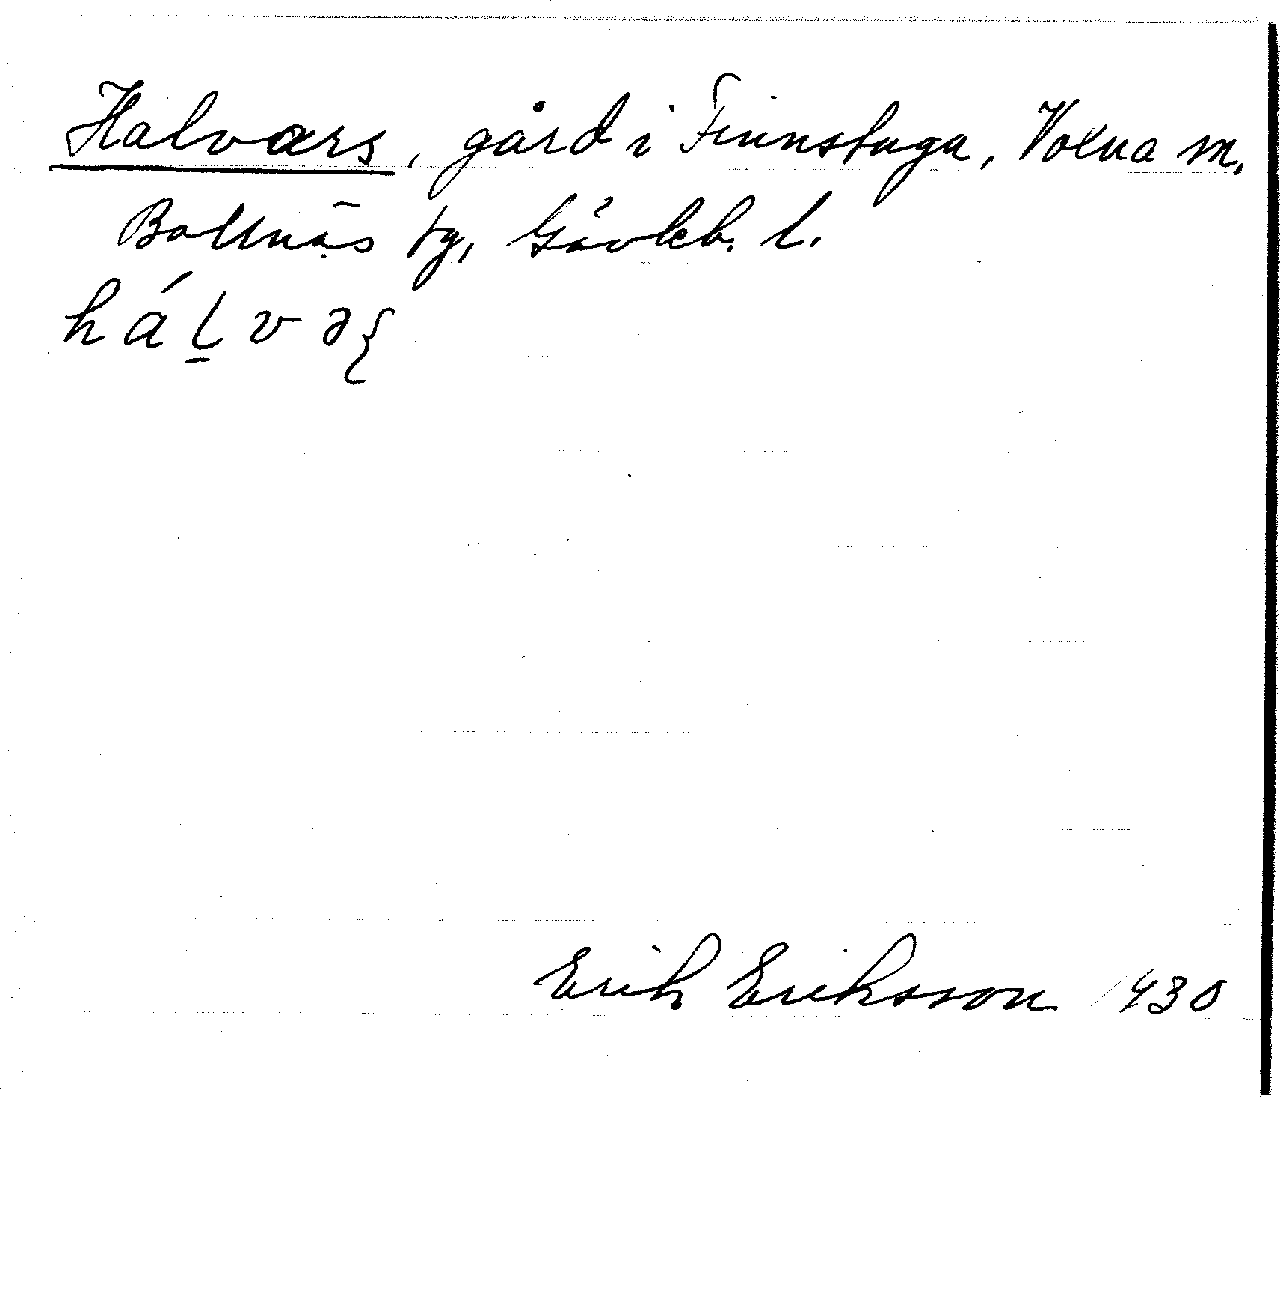 Halvars, gård i Finnstuga, Voxna m.
Bollnäs tg, Gävleb. l.
hál̠vəʃ
Erik Eriksson 1930